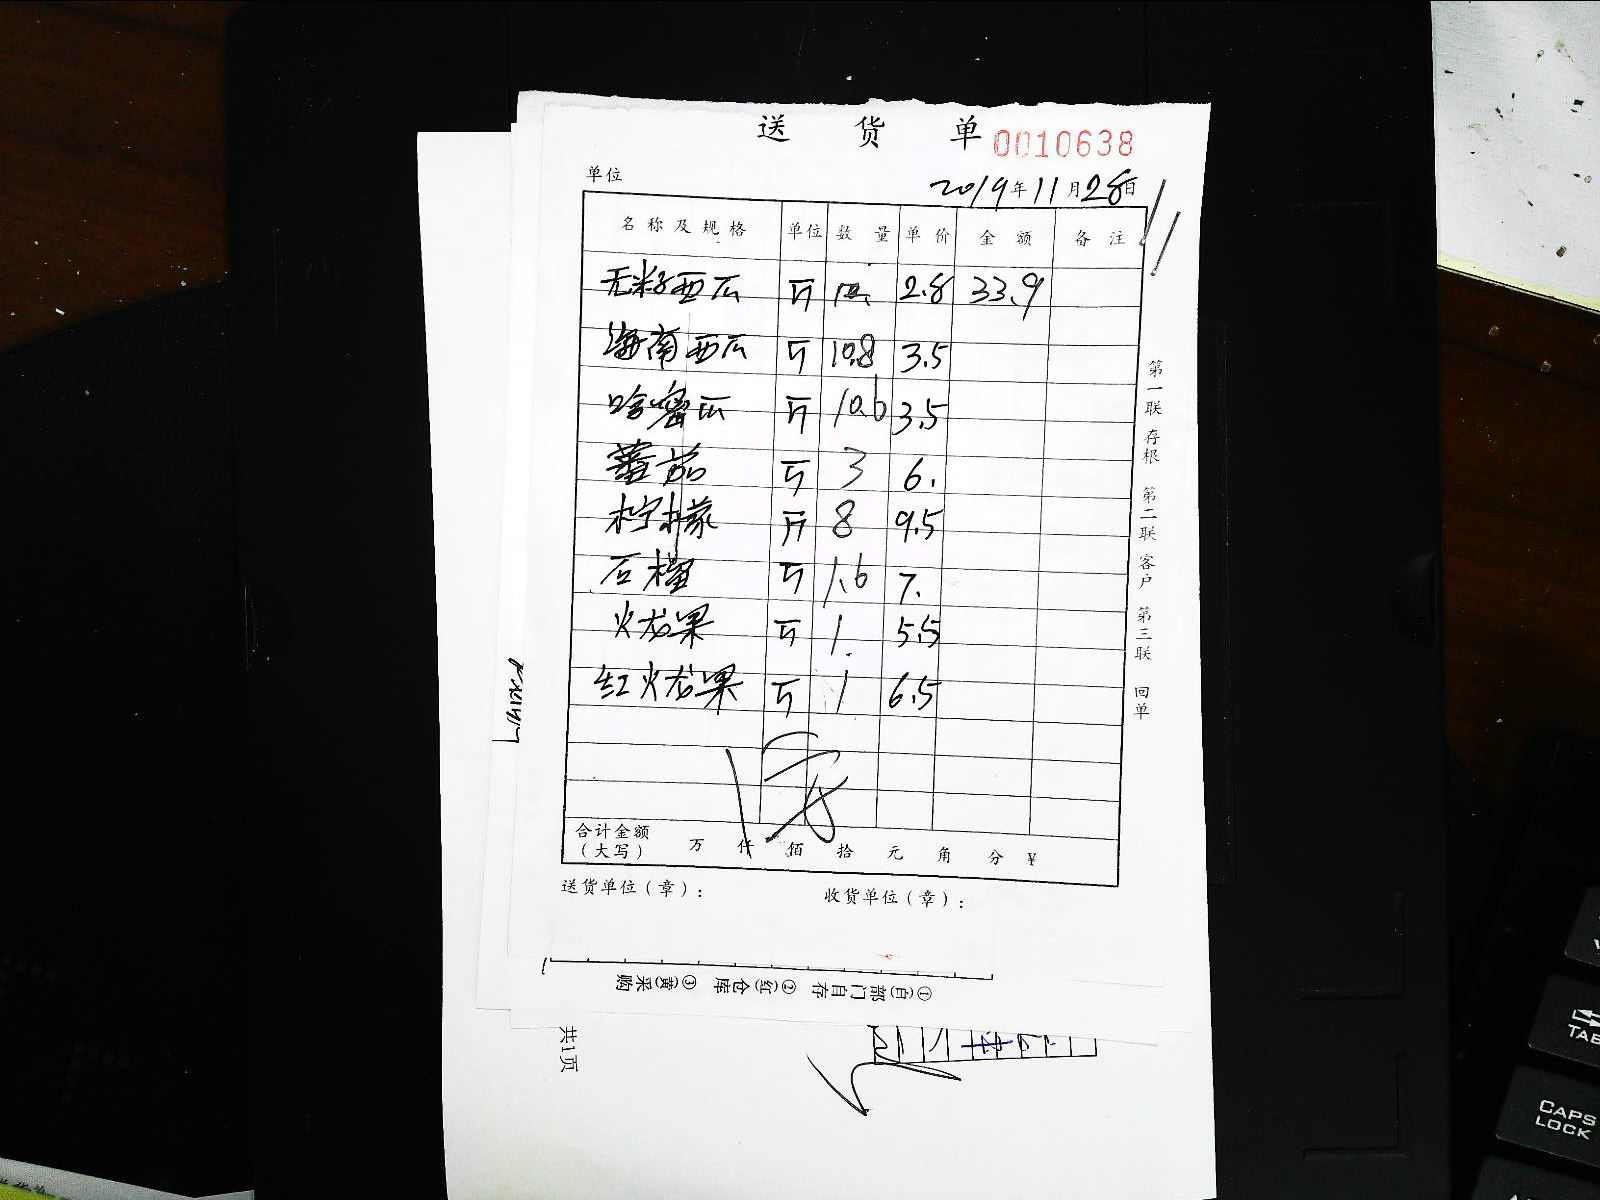 送 货 单 0010638
单位 2019年11月28日
名称及规格 单位 数量 单价 金额 备注
无籽西瓜 斤 2.8 33.9
海南西瓜 斤 10.8 3.5
哈密瓜 斤 10.6 3.5
蕃茄 斤 3 6.
柠檬 斤 8 9.5
石榴 斤 1.6 7.
火龙果 斤 1. 5.5
红火龙果 斤 1 6.5
合计金额
（大写） 万 仟 佰 拾 元 角 分 ¥
送货单位（章）： 收货单位（章）：
第一联 存根 第二联 客户 第三联 回单
①(白)部门自存 ②(红)仓库 ③(黄)采购
共1页
TAB
CAPS
LOCK